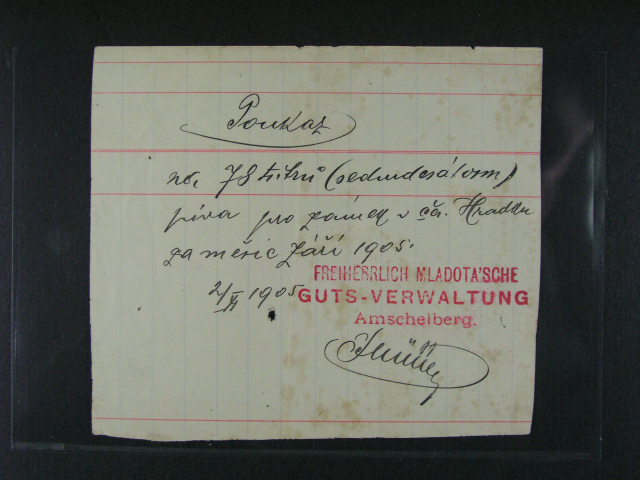 Poukaz
na 78 litrů (sedmdesátosm)
piva pro zámek v čer. Hradku
za měsíc Září 1905.
2/XI 1905
FREIHERRLICH MLADOTA'SCHE
GUTS-VERWALTUNG
Amschelberg.